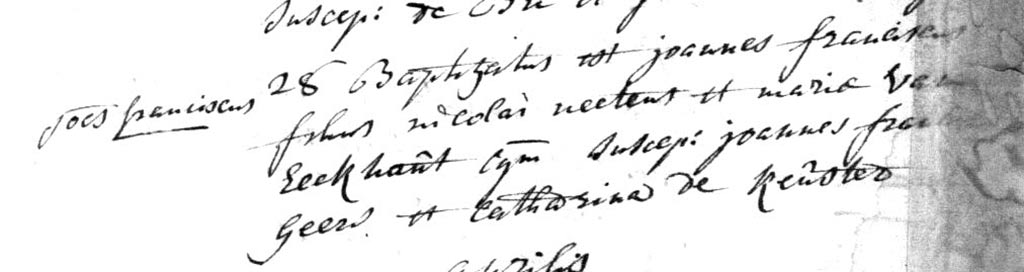 suscep: de
joēs franciscus 28 Baptizatus est joannes franciscus
filius nicolai neetens et mariæ van
Eeckhaūt cōm suscep: joannes fran
Geers et Catharina de Keūster
aprilis